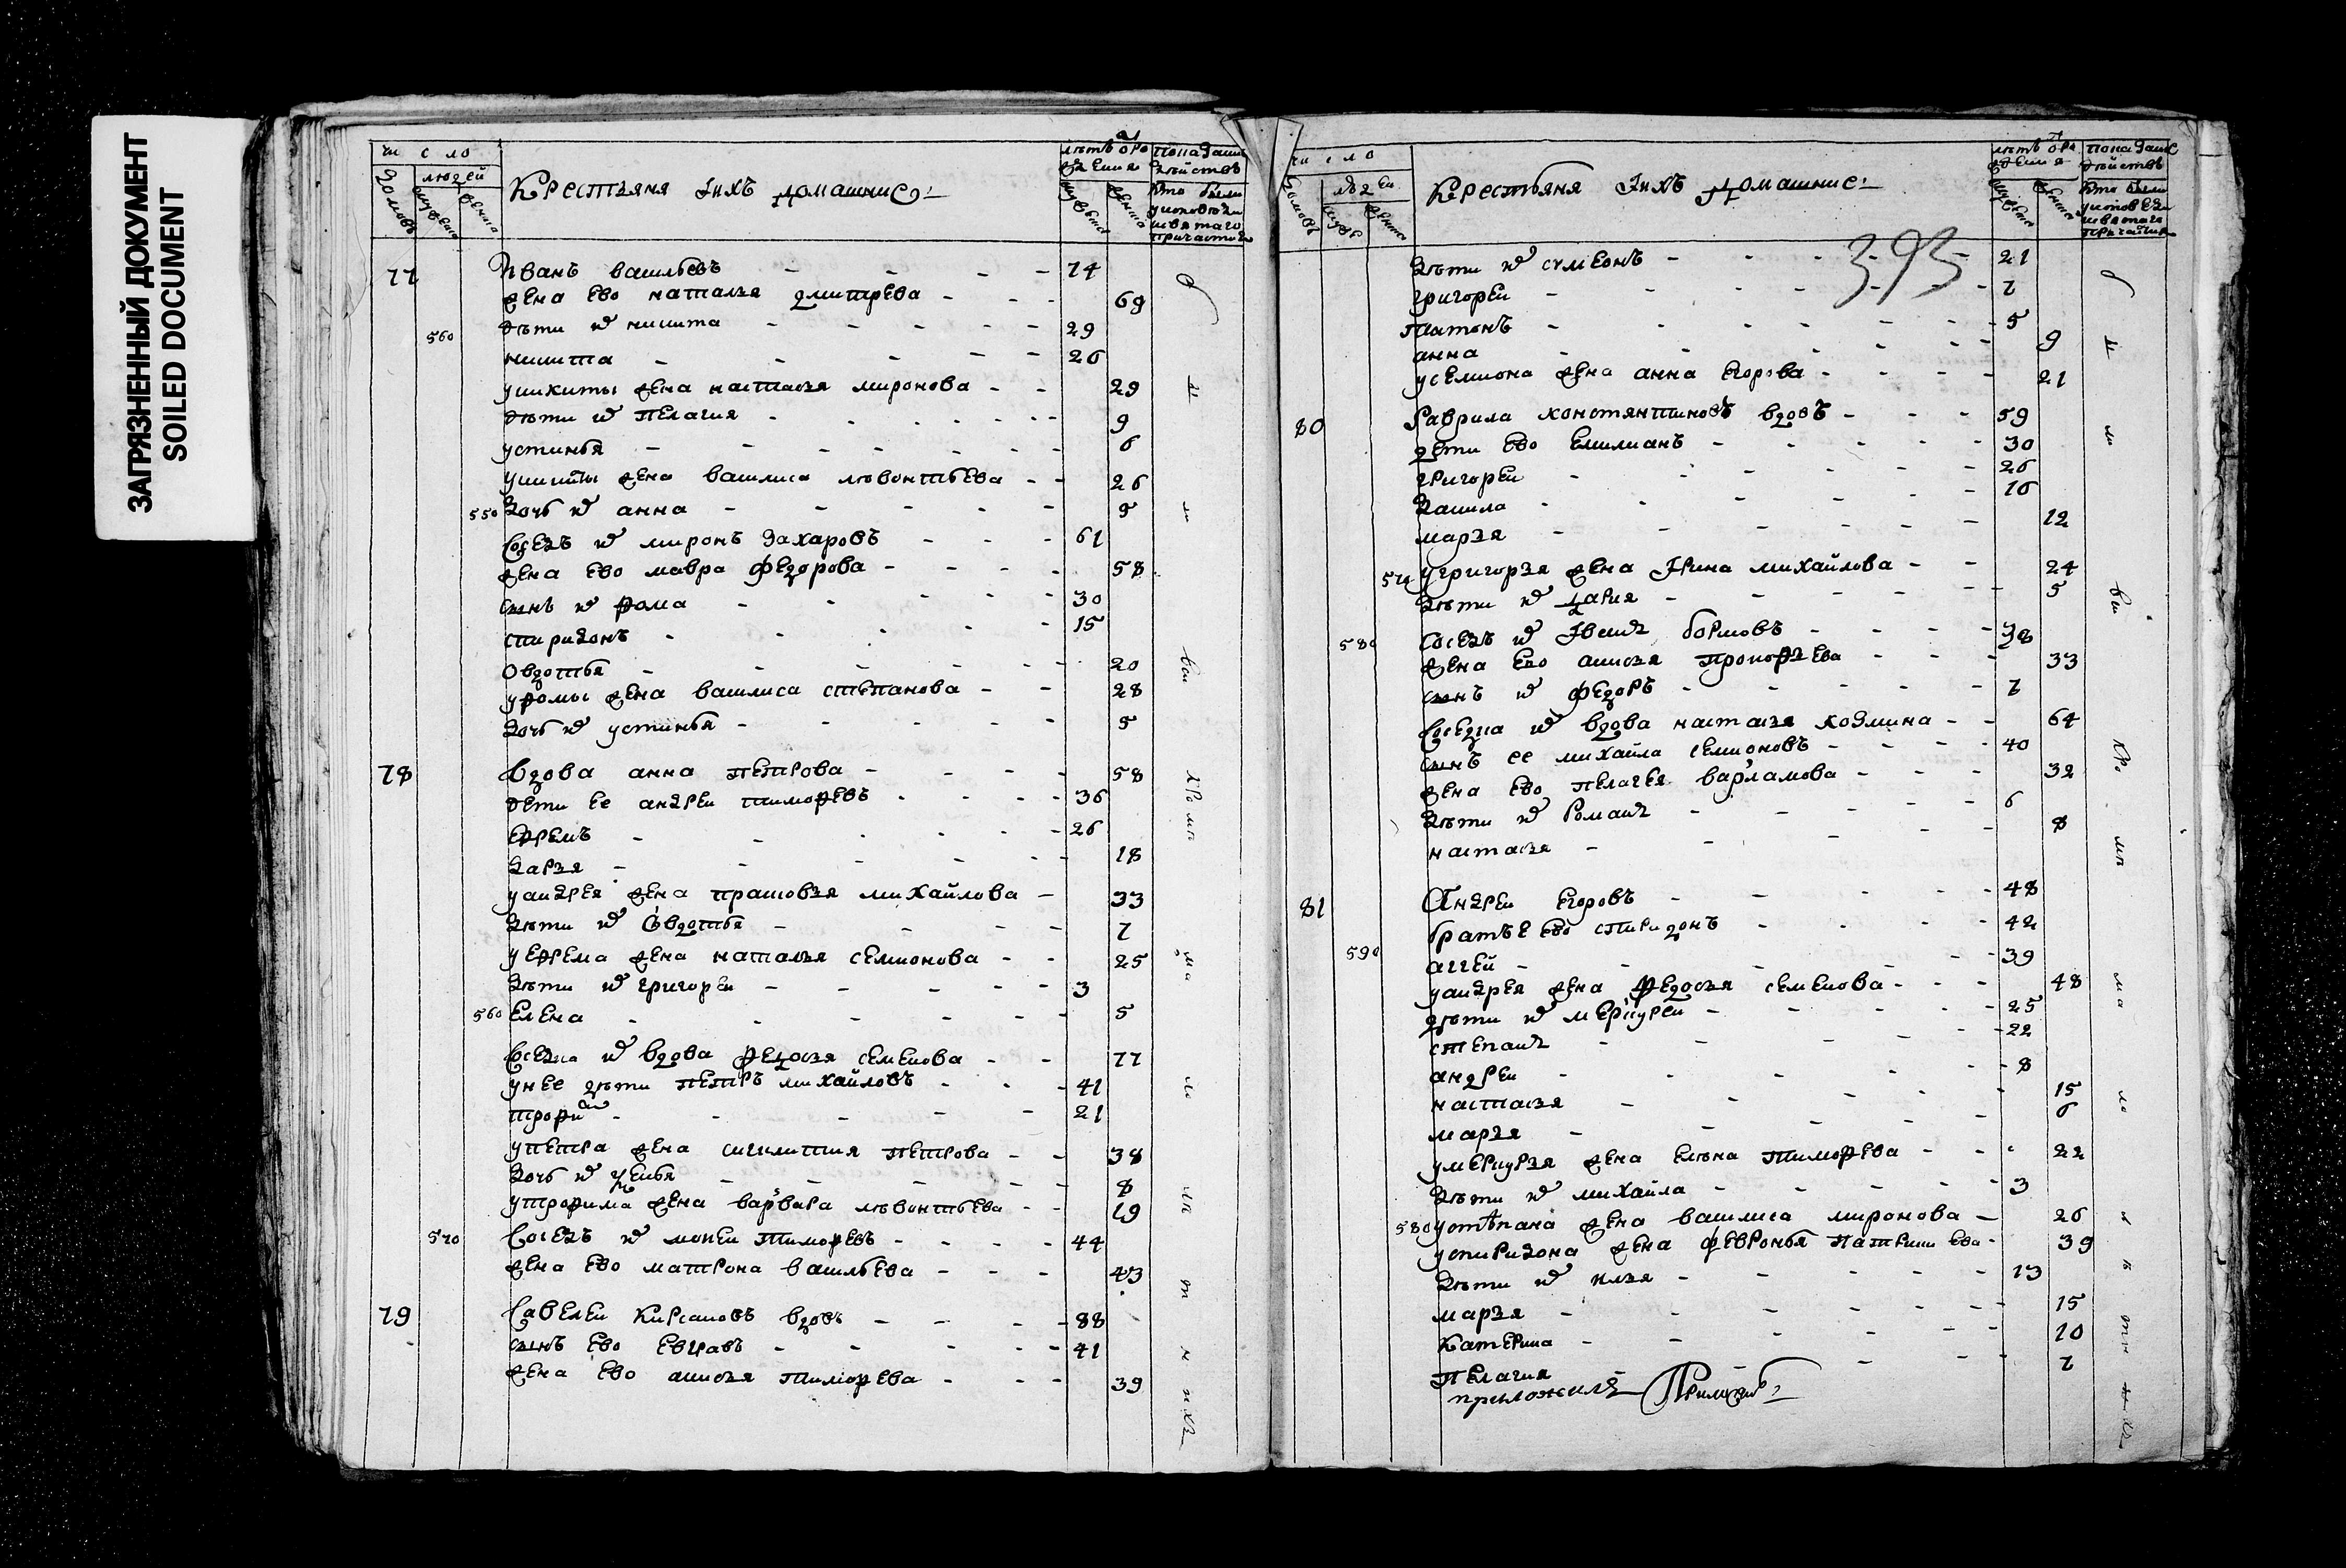 ЗАГРЯЗНЕННЫЙ ДОКУМЕНТ
SOILED DOCUMENT
чи с ло
людей
домовъ
мужеска
женска
Крестьяня Iихъ домашние:
77 Иванъ васильевъ - - - - 74
жена ево наталья дмитрева - - - 69
560 дѣти иⷯ никита - - - - - 29
никита - - - - - 26
уникиты жена настасья миронова - - 29
дѣти иⷯ пелагия - - - - - 9
устинья - - - - - 6
жена василиса лѣвонтьева - - 26
550 дочь иⷯ анна - - - - - 5
Сосѣдъ иⷯ миронъ захаровъ - - - 61
жена ево мавра федорова - - - - 58
сынъ иⷯ фома - - - - - 30
спиридонъ - - - - 15
овдотья - - - - - 20
уфомы жена василиса степанова - - 28
дочь иⷯ устинья - - - - - 5
78 Вдова анна петрова - - - - 58
дети ее андреи тимофевъ - - - - 36
ефремъ - - - - - 26
дарья - - - - - 18
уандрея жена прасковья михайлова - 33
дѣти иⷯ овдотья - - - - 7
уефрема жена наталья семионова - - 25
дѣти иⷯ григореи - - - - - 3
560 Елена - - - - - 5
вдова федосья семенова - - 77
унее дѣти петръ михайловъ - - - 41
трофим - - - - - 21
упетра жена сигклития петрова - - 38
дочь иⷯ - - - - - 8
утрофима жена варвара лѣвонтьева - - 19
570 Сосѣдъ иⷯ мокеи тимофевъ - - - - 44
жена ево матрона васильева - - - 43
79 Савелеи Кирсановъ вдовъ - - - - 88
сынъ ево - - - - - 41
жена ево анисья тимофева - - - 39
чи с ло
людеи
Крестьяня Iихъ домашние:
395
дѣти иⷯ симеонъ - - - - 21
григореи - - - - - 7
платонъ - - - - - 5
анна - - - - - 9
усемиона жена анна егорова - - - - 21
80 Гаврила константиновъ вдовъ - - - 59
дети ево емилианъ - - - - - 30
григореи - - - - - 26
данила - - - - - 16
марья - - - - - 12
угригорья жена Iрина михайлова - - 24
дѣти иⷯ дария - - - - - 5
580 Сосѣдъ иⷯ Iванъ борисовъ - - - - 38
жена ево анисья прокофьева - - - 33
сынъ иⷯ федоръ - - - - - 7
Соседка иⷯ вдова настасья козмина - - 64
сынъ ее михайла семионовъ - - - - 40
жена ево пелагея варламова - - - 32
дѣти иⷯ романъ - - - - 6
настасья - - - - 8
81 Андреи Егоровъ - - - - 48
братье ево спиридонъ - - - - 42
590 аггей - - - - - 39
уандрея жена федосья семенова - - - 48
дѣти иⷯ меркуреи - - - - - 25
степанъ - - - - - 22
андреи - - - - - 8
настасья - - - - - 15
марья - - - - - 6
умеркурья жена елена тимофева - - 22
дѣти иⷯ михайла - - - - - 3
580 устѣпана жена василиса миронова - 26
успиридона жена февронья ева - 39
дѣти иⷯ илья - - - - - 13
марья - - - - - 15
катерина - - - - - 10
пелагия - - - - - 7